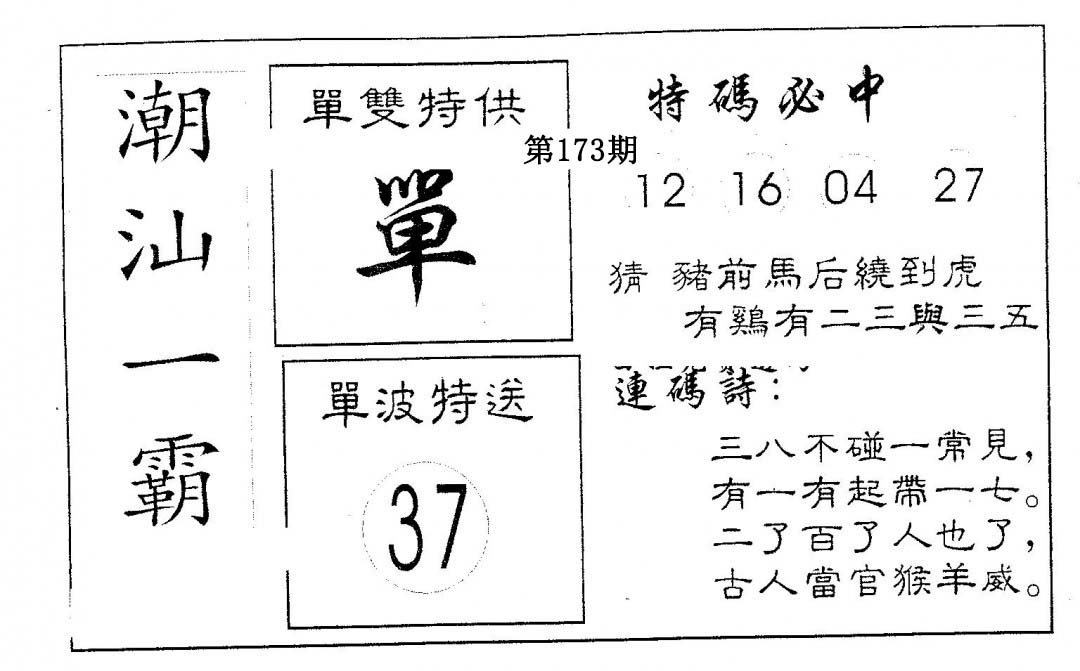 潮汕一霸
單雙特供
單
第173期
特碼必中
12 16 04 27
猜 豬前馬后繞到虎
有鷄有二三與三五
單波特送
37
連碼詩：
三八不碰一常見，
有一有起帶一七。
二了百了人也了，
古人當官猴羊威。